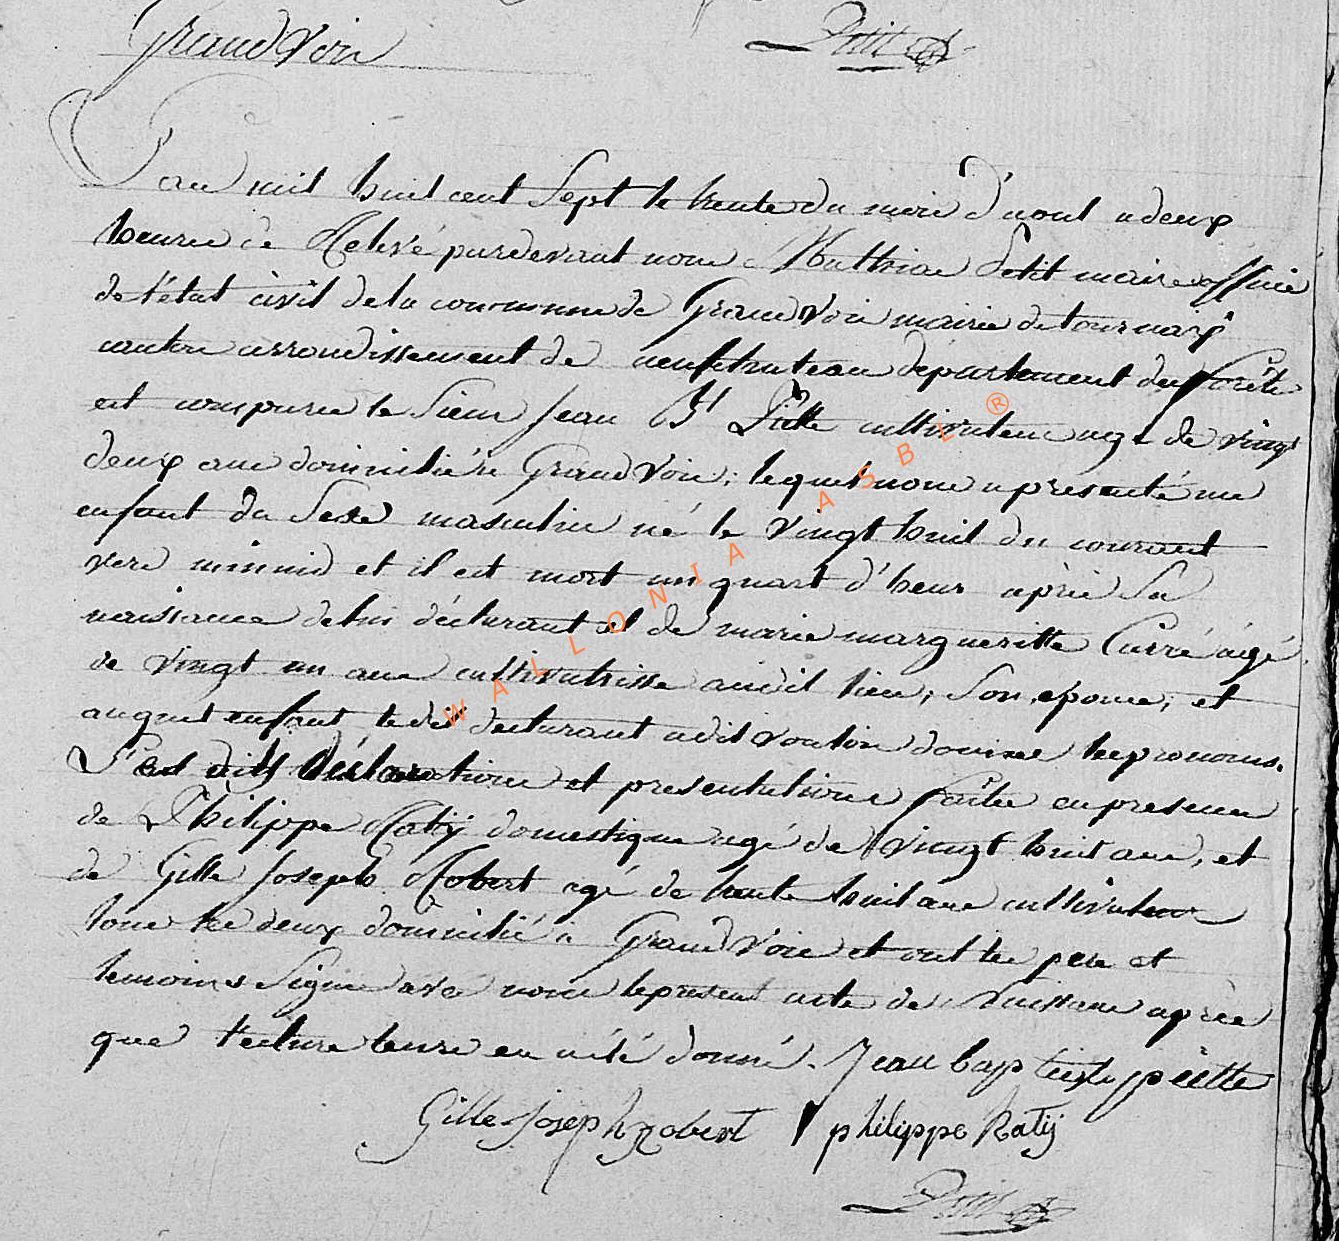 Grand Voir
Petit
L'an mil huit cent Sept le trente du mois d'aout a deux
heures de Relevé pardevant nous Mathias Petit maire officié
de l'état civil de la commune de Grand Voir mairie de tournaix
canton arrondissement de neufchateau département des forêts
est comparu le Sieur Jean Bt Piette cultivateur agé de vingt
deux ans domicilié a Grand Voir; lequel nous a presenté un
enfant du Sexe masculin né le vingt huit du courant
vers minuid et il est mort un quart d'heur après Sa
naissance de lui déclarant et de marie margueritte Carré agé
de vingt un ans cultivatrisse audit lieu; Son épouse; et
auquel enfant ledit declarant a dit vouloir donner les prenoms.
Les dits déclarations et presentations faites en presence
de Philippe Ratij domestique agé de vingt huit ans, et
de Gille Joseph Robert agé de trente huit ans cultivateur
tous les deux domicilié a Grand Voir et ont les pere et
temoins Signé avec nous le present acte de Naissance après
que lecture leurs en a été donné. Jean baptiste piette
Gille Joseph Robert philippe Ratij
Petit
WALLONIA ASBL ®